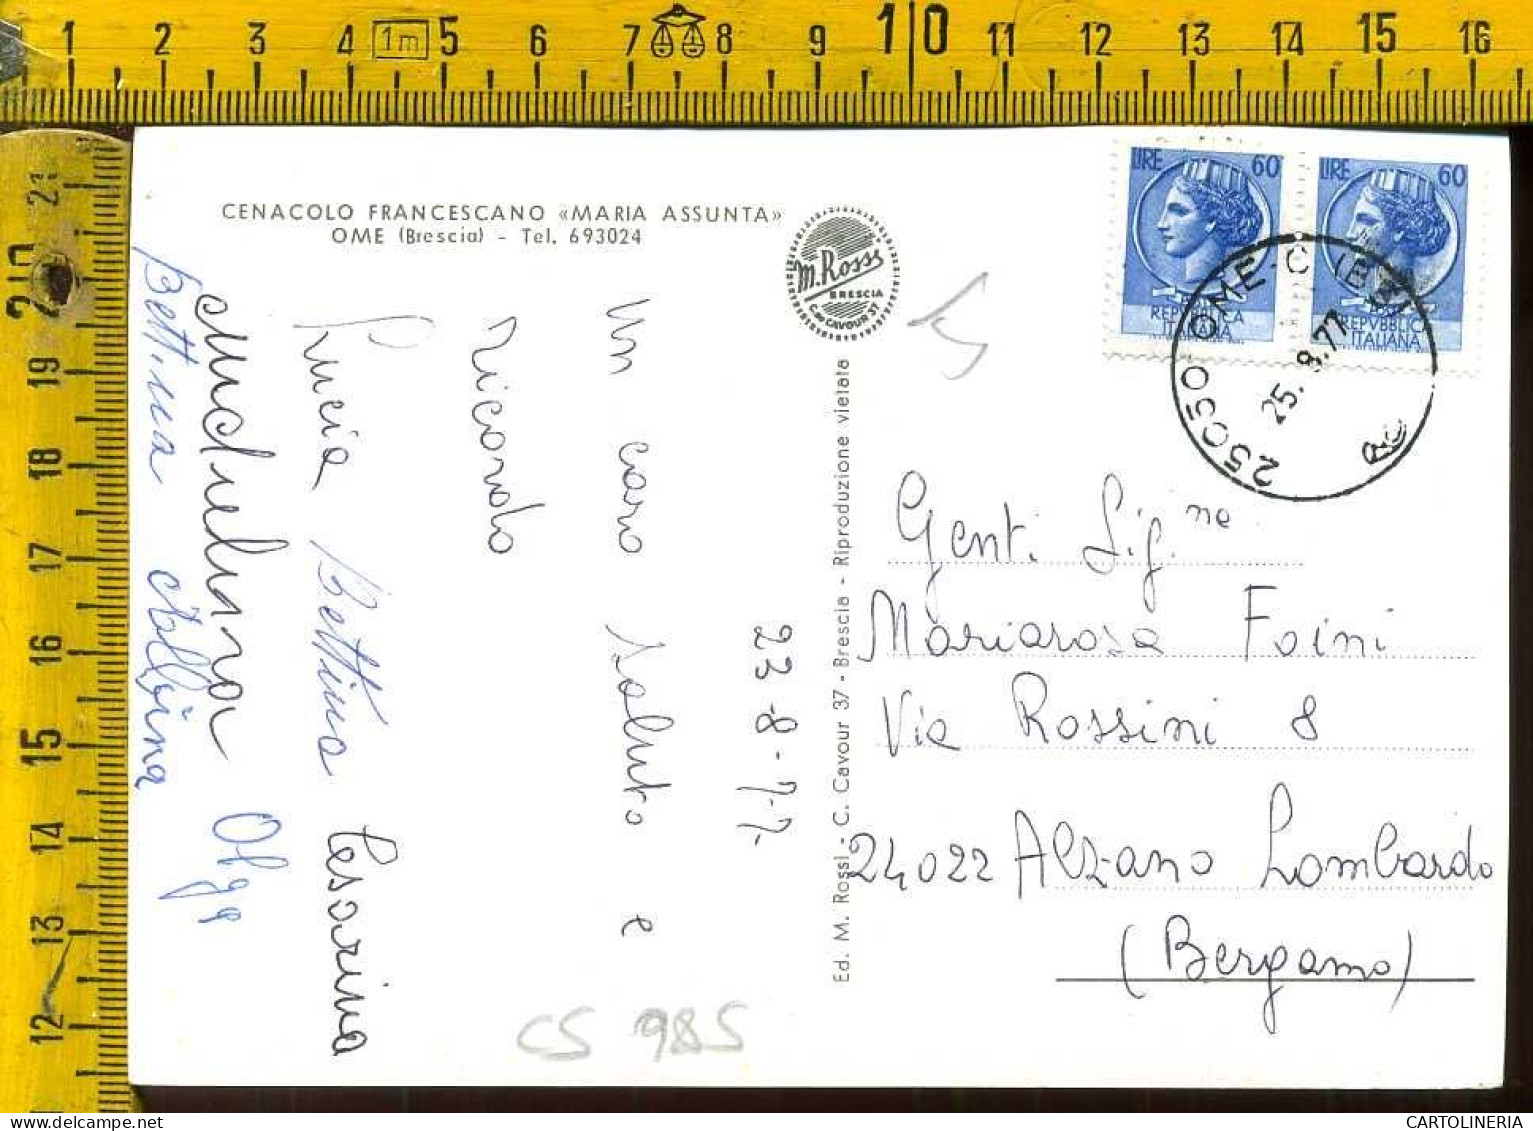 1 2 3 4 1m 5 6 7 8 9 10 11 12 13 14 15 16
21
20
19
18
17
16
15
14
13
12
CENACOLO FRANCESCANO «MARIA ASSUNTA»
OME (Brescia) - Tel. 693024
M. Rossi
BRESCIA
C.so CAVOUR 37
LIRE 60
REPVBBLICA
ITALIANA
LIRE 60
REPVBBLICA
ITALIANA
25050 OME C (BS)
25.8.77
23-8-77-
Un caro saluto e
ricordo
Lucia Bettina Tesorina
Olga
Bettina Albina
Ed. M. Rossi - C. Cavour 37 - Brescia - Riproduzione vietata
Genti. Sig.ne
Mariarosa Foini
Via Rossini 8
24022 Alzano Lombardo
(Bergamo)
CS 985
CARTOLINERIA